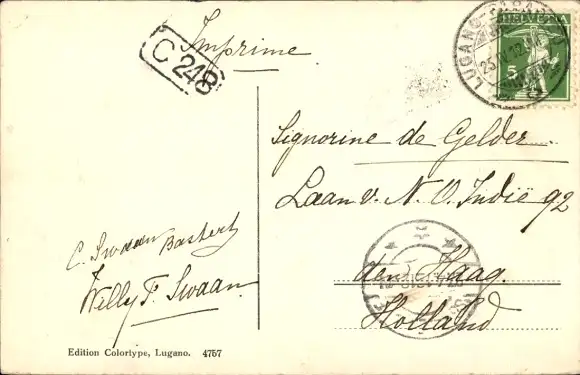 Imprimé
C 248
HELVETIA
5
LUGANO
Signorine de Gelder
Laan v. N. O. Indië 92
den Haag.
Holland
C. Swaan Bastert
Willy F. Swaan
Edition Colortype, Lugano. 4757